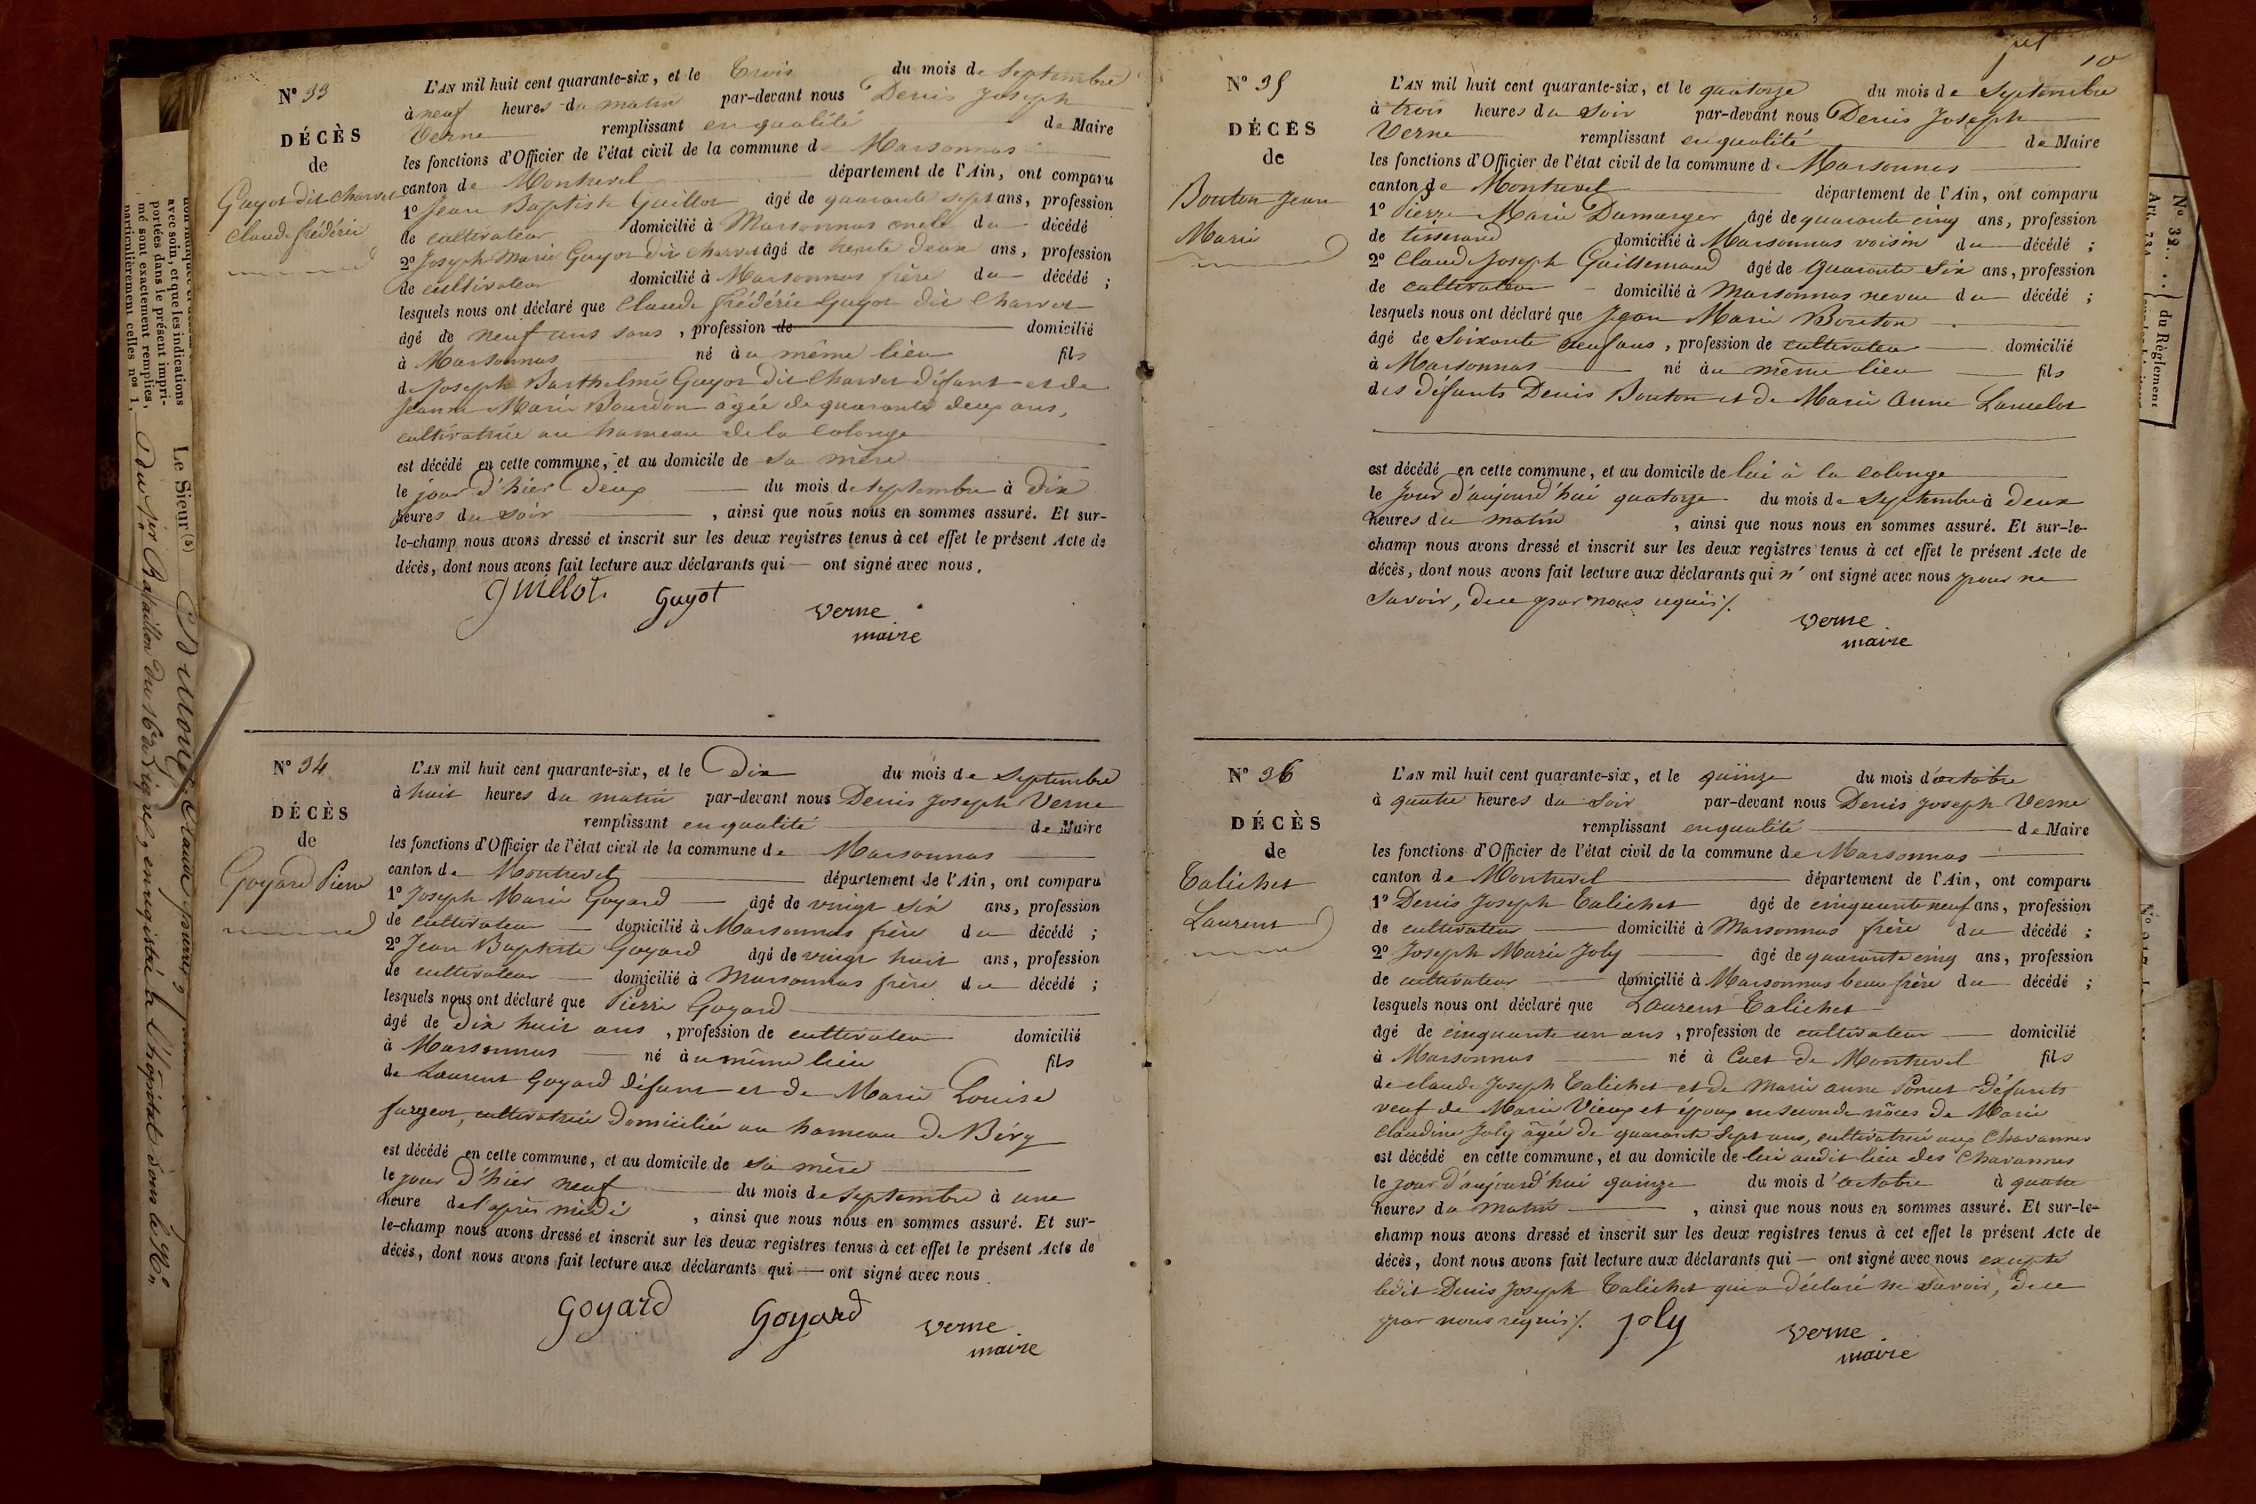 N° 33
DÉCÈS
de
Guyot dit Charvet
Claude frédéric
L'AN mil huit cent quarante-six, et le Trois du mois de Septembre
à neuf heures du matin par-devant nous Denis Joseph
Verne remplissant en qualité de Maire
les fonctions d'Officier de l'état civil de la commune de Marsonnas
canton de Montrevel département de l'Ain, ont comparu
1° Jean Baptiste Guillot âgé de quarante sept ans, profession
de cultivateur domicilié à Marsonnas oncle du décédé
2° Joseph Marie Guyot dit Charvet âgé de trente deux ans, profession
de cultivateur domicilié à Marsonnas frère du décédé ;
lesquels nous ont déclaré que Claude frédéric Guyot dit Charvet
âgé de neuf ans sans , profession de domicilié
à Marsonnas né au même lieu fils
de Joseph Barthelmi Guyot dit Charvet défunt et de
Jeanne Marie Bourdon âgée de quarante deux ans,
cultivatrice au hameau de la Colonge
est décédé en cette commune, et au domicile de sa mère
le jour d'hier deux du mois de Septembre à Dix
heures du soir , ainsi que nous nous en sommes assuré. Et sur-
le-champ nous avons dressé et inscrit sur les deux registres tenus à cet effet le présent Acte de
décès, dont nous avons fait lecture aux déclarants qui — ont signé avec nous.
guillot guyot verne
maire
N° 34
DÉCÈS
de
Goyard Pierre
L'AN mil huit cent quarante-six, et le Dix du mois de Septembre
à huit heures du matin par-devant nous Denis Joseph Verne
remplissant en qualité de Maire
les fonctions d'Officier de l'état civil de la commune de Marsonnas
canton de Montrevel département de l'Ain, ont comparu
1° Joseph Marie Goyard — âgé de vingt six ans, profession
de cultivateur — domicilié à Marsonnas frère du décédé ;
2° Jean Baptiste Goyard âgé de vingt huit ans, profession
de cultivateur — domicilié à Marsonnas frère du décédé ;
lesquels nous ont déclaré que Pierre Goyard
âgé de Dix huit ans , profession de cultivateur domicilié
à Marsonnas — né au même lieu fils
de Laurent Goyard défunt et de Marie Louise
furgeot, cultivatrice domiciliée au hameau de Bévy
est décédé en cette commune, et au domicile de sa mère
le jour d'hier neuf du mois de septembre à une
heure de l'après midi , ainsi que nous nous en sommes assuré. Et sur-
le-champ nous avons dressé et inscrit sur les deux registres tenus à cet effet le présent Acte de
décès, dont nous avons fait lecture aux déclarants qui — ont signé avec nous.
Goyard Goyard verne
maire
10
N° 35
DÉCÈS
de
Bouton Jean
Marie
L'AN mil huit cent quarante-six, et le quatorze du mois de Septembre
à trois heures du soir par-devant nous Denis Joseph
Verne remplissant en qualité de Maire
les fonctions d'Officier de l'état civil de la commune de Marsonnas
canton de Montrevel département de l'Ain, ont comparu
1° Pierre Marie Damarger âgé de quarante cinq ans, profession
de tisserand domicilié à Marsonnas voisin du décédé ;
2° Claude Joseph Guillemaud âgé de quarante six ans, profession
de cultivateur — domicilié à Marsonnas neveu du décédé ;
lesquels nous ont déclaré que Jean Marie Bouton
âgé de Soixante neuf ans , profession de cultivateur — domicilié
à Marsonnas né au même lieu fils
des défunts Denis Bouton et de Marie Anne Lancelot
est décédé en cette commune, et au domicile de lui à la Colonge
le Jour d'aujourd'hui quatorze du mois de septembre à deux
heures du matin , ainsi que nous nous en sommes assuré. Et sur-le-
champ nous avons dressé et inscrit sur les deux registres tenus à cet effet le présent Acte de
décès, dont nous avons fait lecture aux déclarants qui n' ont signé avec nous pour ne
savoir, de ce par nous requis ./.
verne
maire
N° 36
DÉCÈS
de
Calichet
Laurent
L'AN mil huit cent quarante-six, et le quinze du mois d'octobre
à quatre heures du soir par-devant nous Denis Joseph Verne
remplissant en qualité de Maire
les fonctions d'Officier de l'état civil de la commune de Marsonnas
canton de Montrevel département de l'Ain, ont comparu
1° Denis Joseph Calichet âgé de cinquante neuf ans, profession
de cultivateur — domicilié à Marsonnas frère du décédé ;
2° Joseph Marie Joly — âgé de quarante cinq ans, profession
de cultivateur — domicilié à Marsonnas beau frère du décédé ;
lesquels nous ont déclaré que Laurent Calichet
âgé de cinquante un ans , profession de cultivateur — domicilié
à Marsonnas — né à Cuet de Montrevel fils
de claude Joseph Calichet et de Marie anne Poncet défunts
veuf de Marie Vieux et époux en seconde nôces de Marie
Claudine Joly âgée de quarante sept ans, cultivatrice aux Chavannes
est décédé en cette commune, et au domicile de lui audit lieu des Chavannes
le jour d'aujourd'hui quinze du mois d'octobre à quatre
heures du matin , ainsi que nous nous en sommes assuré. Et sur-le-
champ nous avons dressé et inscrit sur les deux registres tenus à cet effet le présent Acte de
décès, dont nous avons fait lecture aux déclarants qui — ont signé avec nous excepté
ledit Denis Joseph Calichet qui a déclaré ne savoir, de ce
par nous requis ./. joly verne
maire
avec soin, et que les indications
portées dans le présent impri-
mé sont exactement remplies,
particulièrement celles nos 1,
Le Sieur (5)
N° 32.
Art. 734
du Règlement